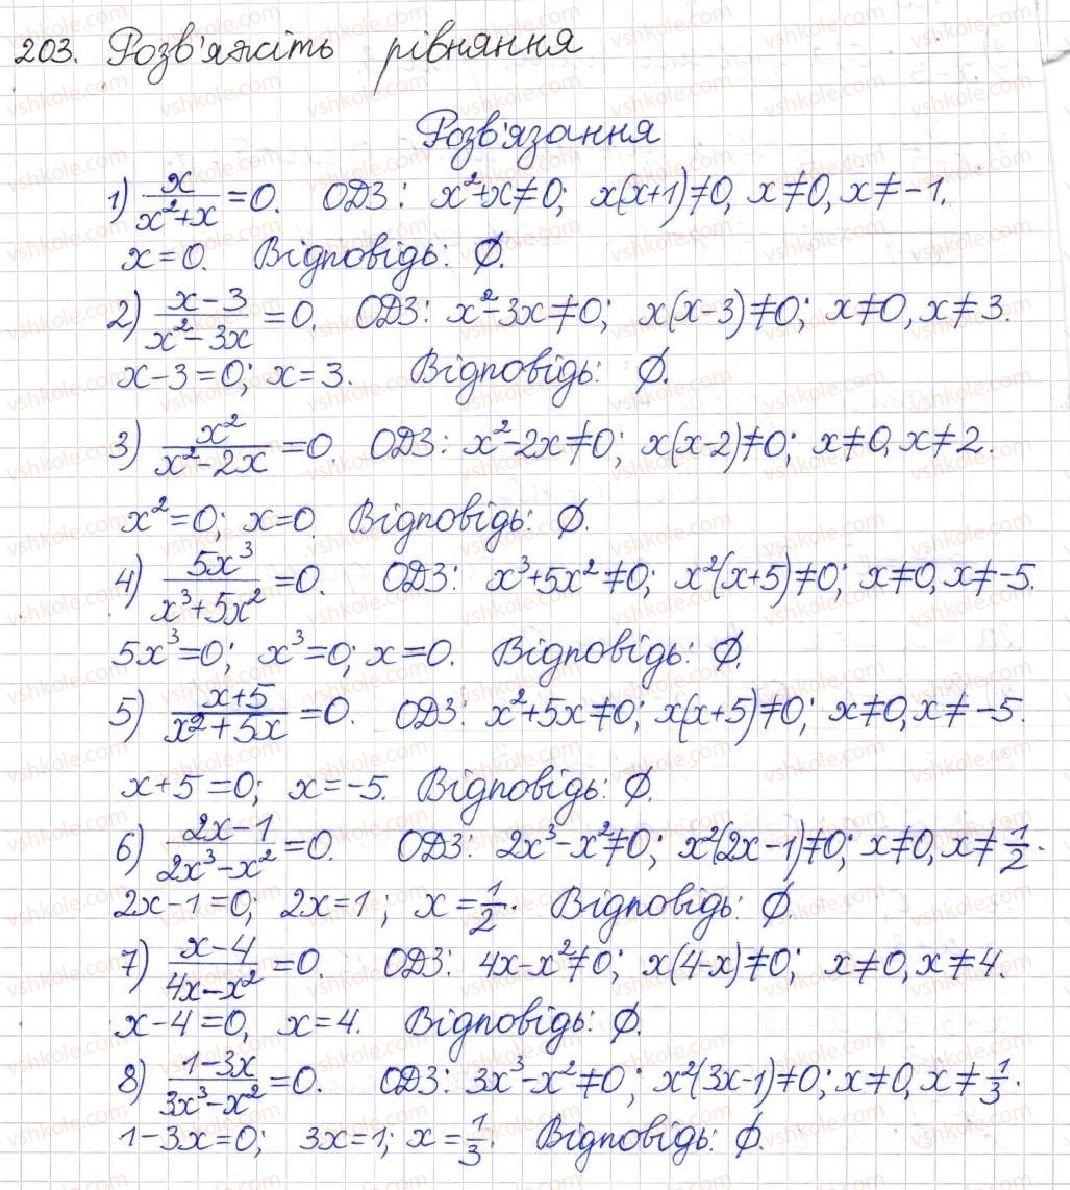 203. Розв'яжіть рівняння
Розв'язання
1) x/(x²+x) = 0. ОДЗ: x²+x≠0; x(x+1)≠0, x≠0, x≠-1.
x=0. Відповідь: ∅.
2) (x-3)/(x²-3x) = 0. ОДЗ: x²-3x≠0; x(x-3)≠0; x≠0, x≠3.
x-3=0; x=3. Відповідь: ∅.
3) x²/(x²-2x) = 0. ОДЗ: x²-2x≠0; x(x-2)≠0; x≠0, x≠2.
x²=0; x=0. Відповідь: ∅.
4) 5x³/(x³+5x²) = 0. ОДЗ: x³+5x²≠0; x²(x+5)≠0; x≠0, x≠-5.
5x³=0; x³=0; x=0. Відповідь: ∅.
5) (x+5)/(x²+5x) = 0. ОДЗ: x²+5x≠0; x(x+5)≠0; x≠0, x≠-5.
x+5=0; x=-5. Відповідь: ∅.
6) (2x-1)/(2x³-x²) = 0. ОДЗ: 2x³-x²≠0; x²(2x-1)≠0; x≠0, x≠1/2.
2x-1=0; 2x=1; x=1/2. Відповідь: ∅.
7) (x-4)/(4x-x²) = 0. ОДЗ: 4x-x²≠0; x(4-x)≠0; x≠0, x≠4.
x-4=0, x=4. Відповідь: ∅.
8) (1-3x)/(3x³-x²) = 0. ОДЗ: 3x³-x²≠0; x²(3x-1)≠0; x≠0, x≠1/3.
1-3x=0; 3x=1; x=1/3. Відповідь: ∅.
vshkole.com